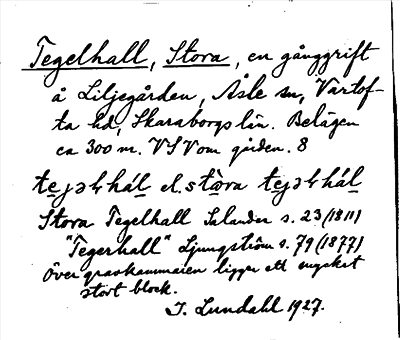 Tegelhall, Stora, en gånggrift
å Liljegården, Åsle sn, Vartof-
ta hd, Skaraborgs län. Belägen
ca 300 m. VSV om gården. 8
el. stòra
Stora Tegelhall Salander s. 23 (1811)
"Tegerhall" Ljungström s. 79 (1877)
Över gravkammaren ligger ett mycket
stort block.
I. Lundahl 1927.